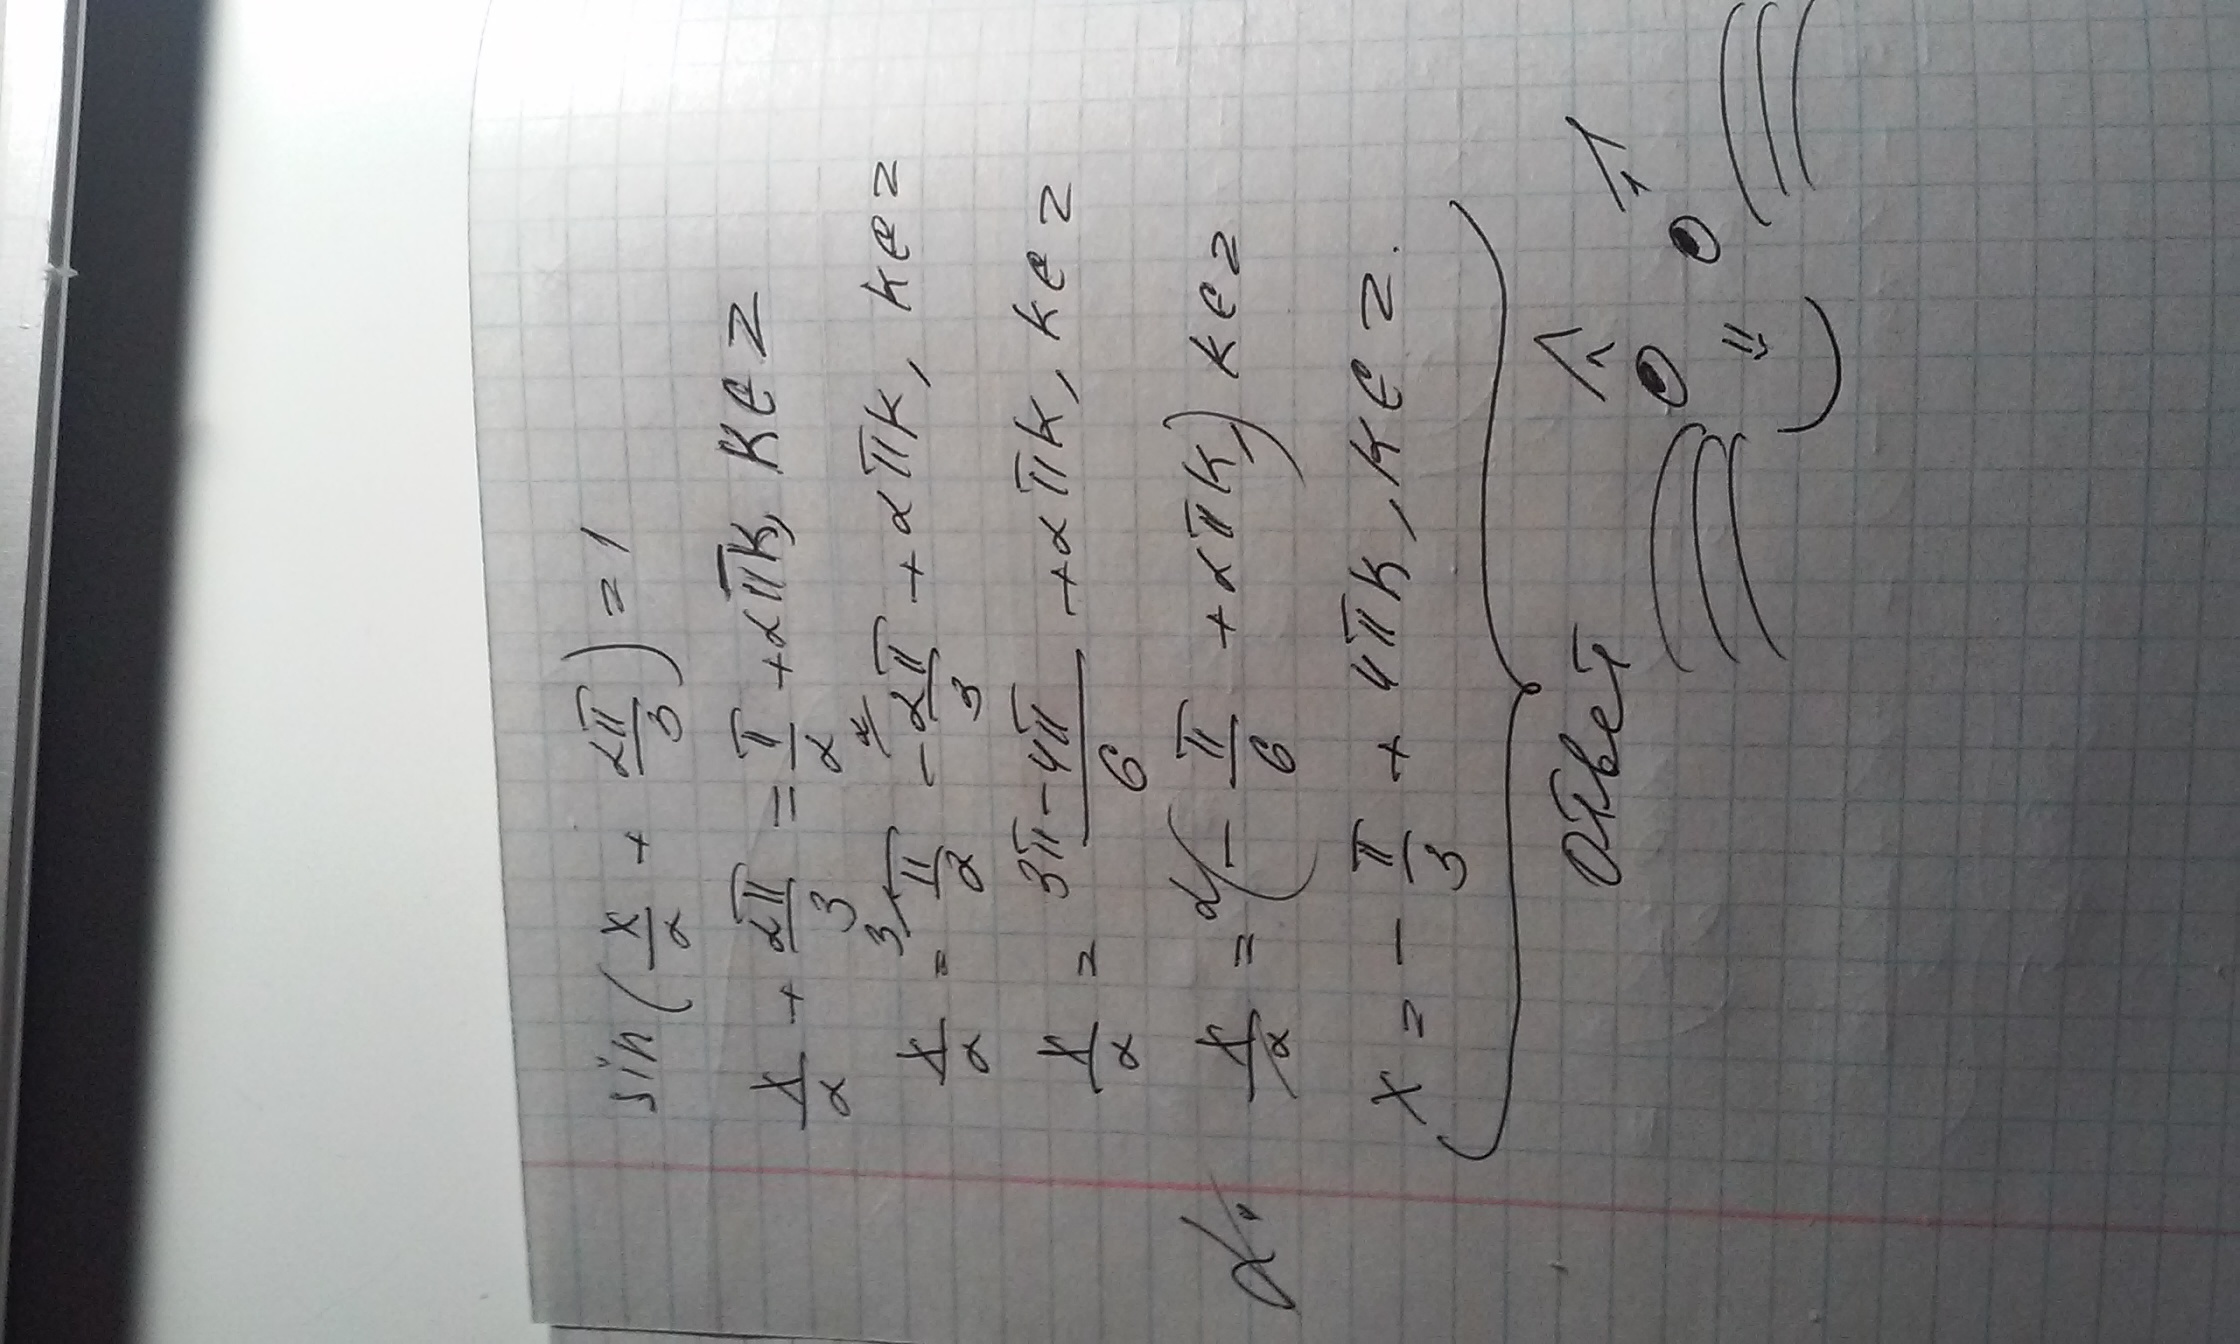 sin(x/2 + 2π/3) = 1
x/2 + 2π/3 = π/2 + 2πk, k∈z
x/2 = 3/π/2 - 2/2π/3 + 2πk, k∈z
x/2 = 3π-4π/6 + 2πk, k∈z
2· x/2 = 2(-π/6 + 2πk), k∈z
x = -π/3 + 4πk, k∈z.
Ответ